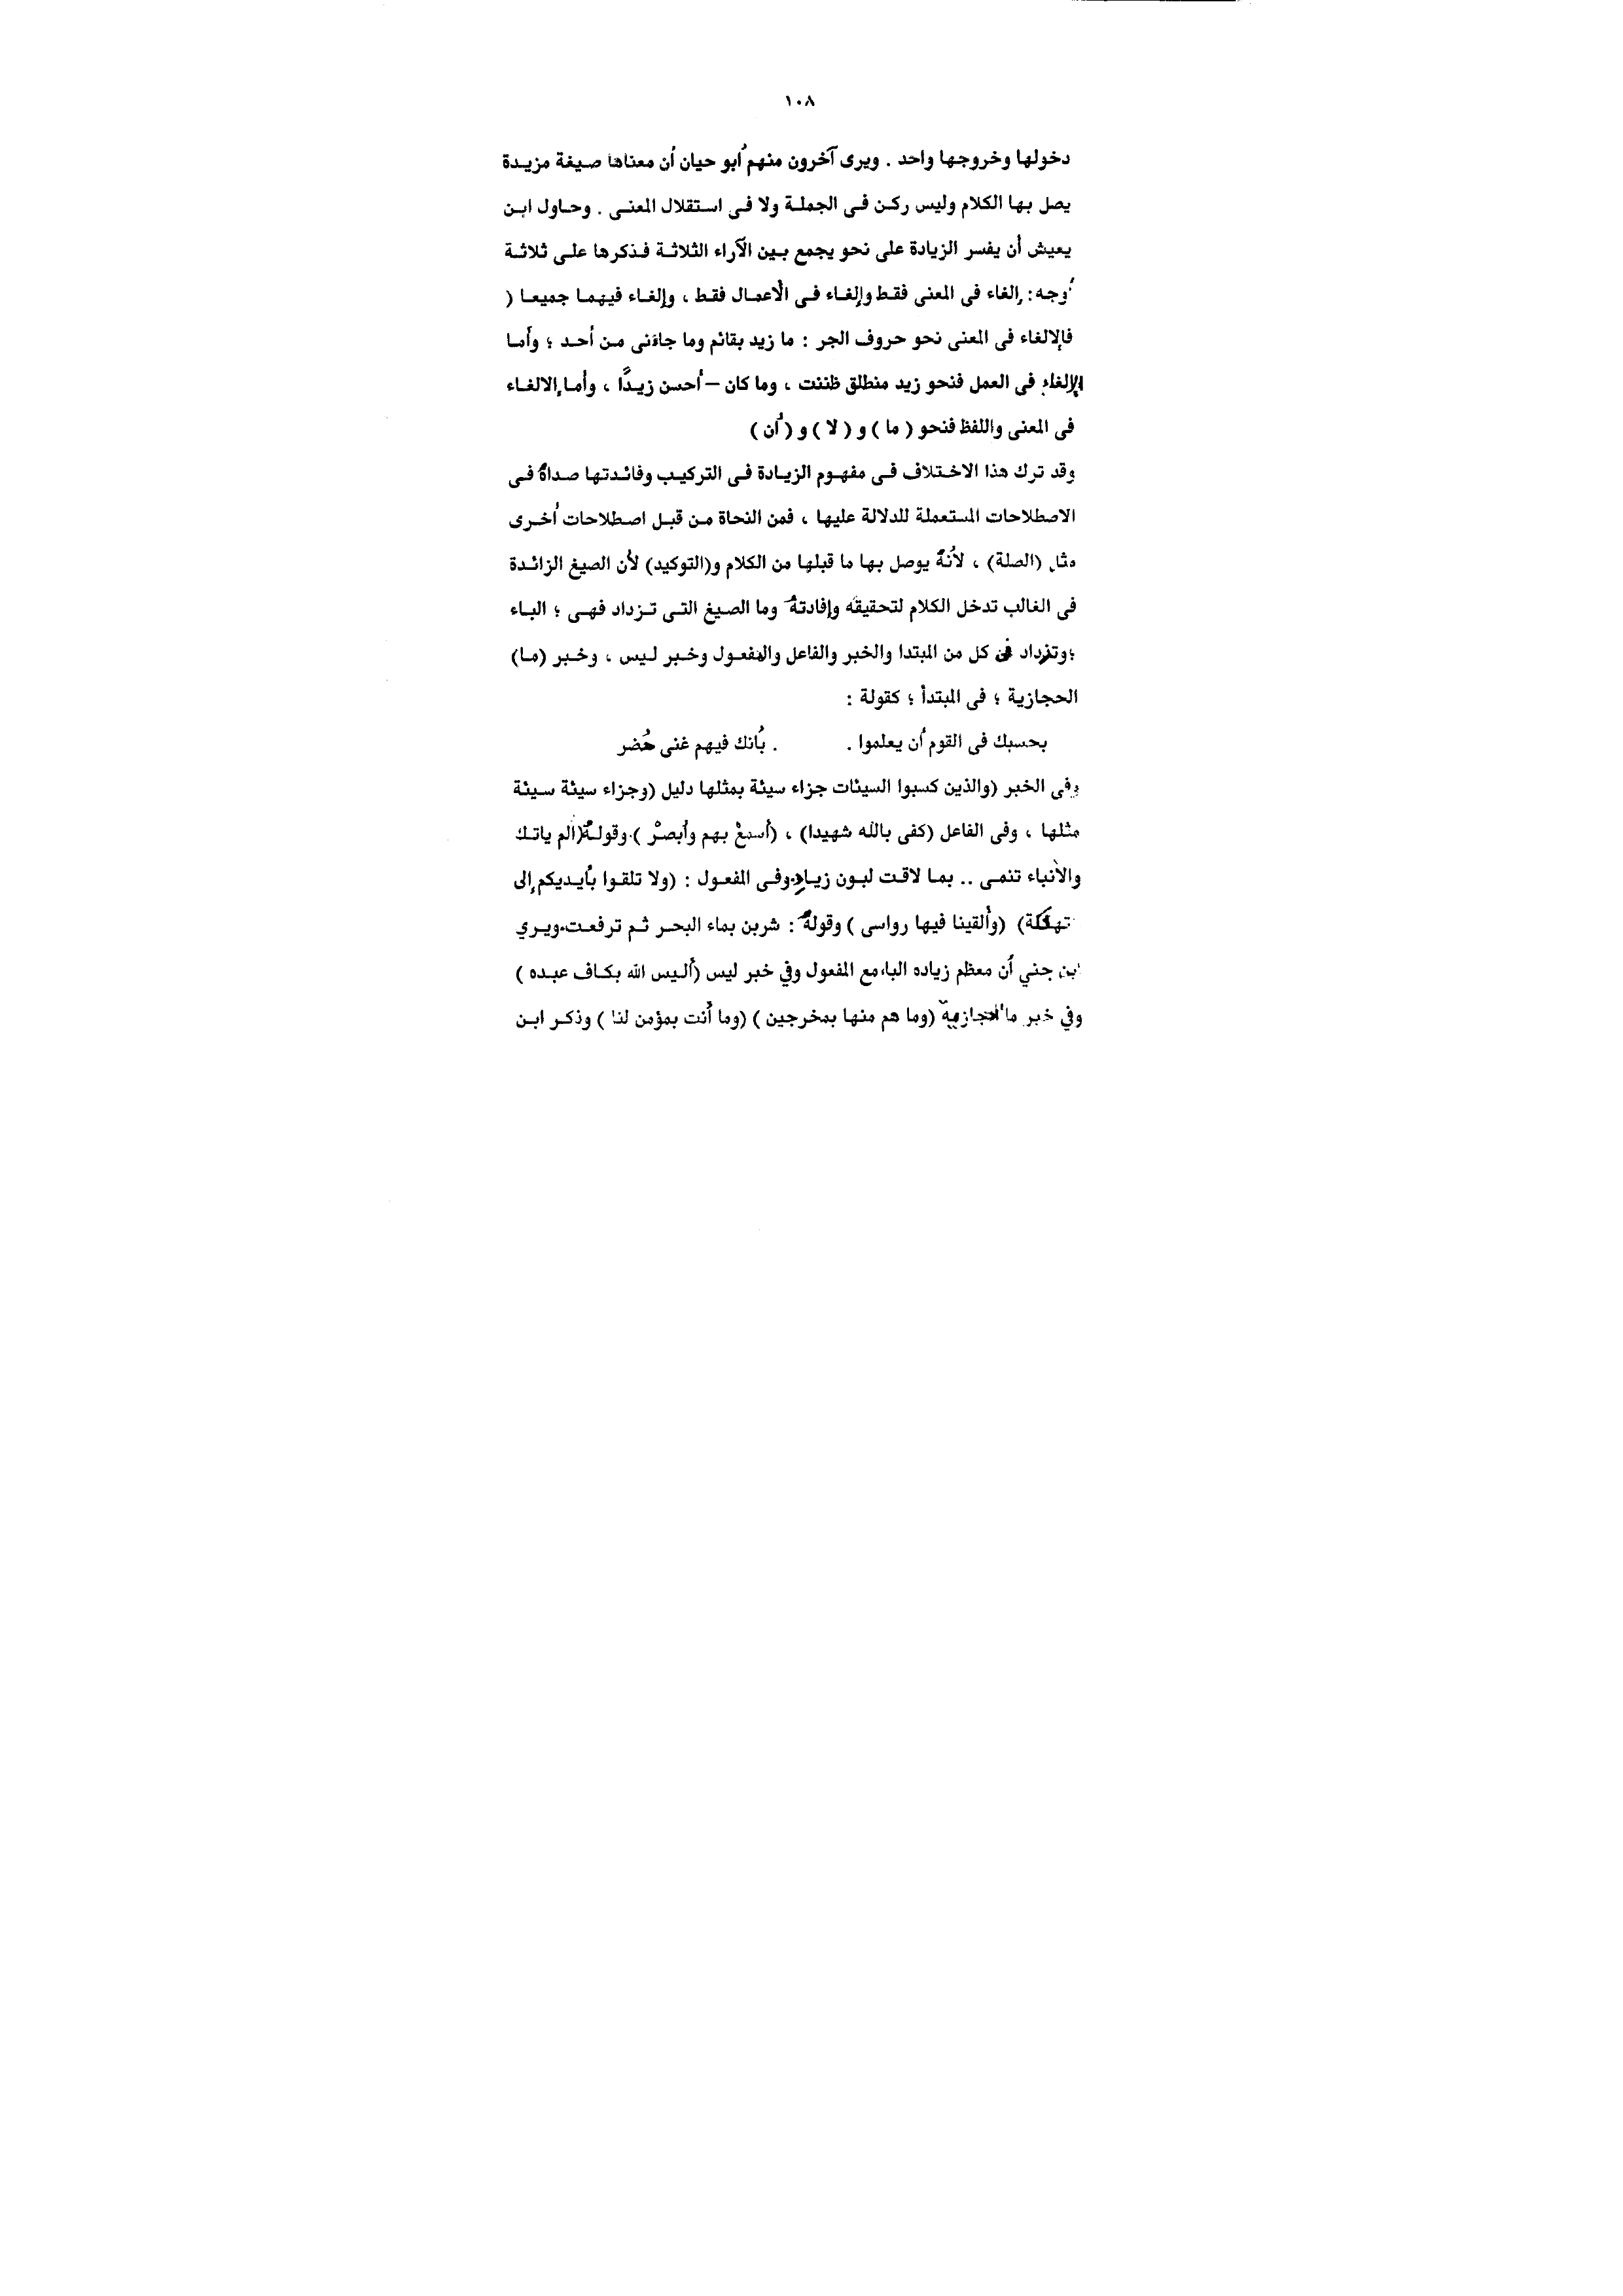 ١٠٨
دخولها وخروجها واحد . ويرى آخرون منهم أبو حيان أن معناها صيغة مزيدة
يصل بها الكلام وليس ركن فى الجملة ولا فى استقلال المعنى . وحاول ابن
يعيش أن يفسر الزيادة على نحو يجمع بين الآراء الثلاثة فذكرها على ثلاثة
أوجه : إلغاء فى المعنى فقط وإلغاء فى الأعمال فقط ، وإلغاء فيهما جميعا (
فالإلغاء فى المعنى نحو حروف الجر : ما زيد بقائم وما جاءنى من أحد ؛ وأما
الإلغاء فى العمل فنحو زيد منطلق ظننت ، وما كان – أحسن زيدًا ، وأما الالغاء
فى المعنى واللفظ فنحو ( ما ) و ( لا ) و ( أن )
وقد ترك هذا الاختلاف فى مفهوم الزيادة فى التركيب وفائدتها صداه فى
الاصطلاحات المستعملة للدلالة عليها ، فمن النحاة من قبل اصطلاحات أخرى
مثل (الصلة) ، لأنه يوصل بها ما قبلها من الكلام و(التوكيد) لأن الصيغ الزائدة
فى الغالب تدخل الكلام لتحقيقه وإفادته وما الصيغ التى تزداد فهى ؛ الباء
؛وتزداد فى كل من المبتدا والخبر والفاعل والمفعول وخبر ليس ، وخبر (ما)
الحجازية ؛ فى المبتدأ ؛ كقولة :
بحسبك فى القوم أن يعلموا . . بأنك فيهم غنى مُضر
وفى الخبر (والذين كسبوا السيئات جزاء سيئة بمثلها دليل (وجزاء سيئة سيئة
مثلها ، وفى الفاعل (كفى بالله شهيدا) ، (أسمعْ بهم وأبصرْ ).وقوله(ألم ياتك
والأنباء تنمى .. بما لاقت لبون زياد.وفى المفعول : (ولا تلقوا بأيديكم إلى
تهلكة) (وألقينا فيها رواسى ) وقوله : شربن بماء البحر ثم ترفعت.ويري
ابن جني أن معظم زياده الباء مع المفعول وفي خبر ليس (أليس الله بكاف عبده )
وفي خبر ما الحجازية (وما هم منها بمخرجين ) (وما أنت بمؤمن لنا ) وذكر ابن